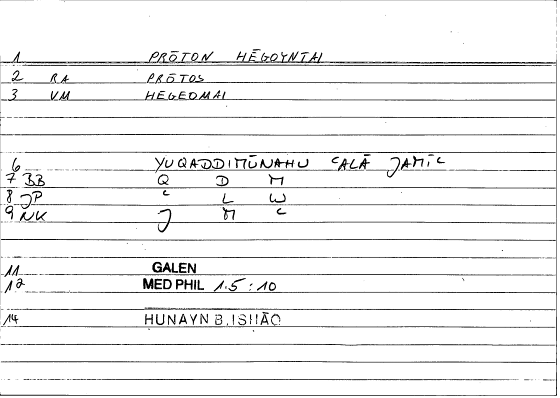 1 PRŌTON HĒGOYNTAI
2 RA PRŌTOS
3 VM HEGEOMAI
6 YUQADDIMŪNAHU ʿALĀ JAMĪʿ
7 BB Q D M
8 JP ʿ L W
9 NK J M ʿ
11 GALEN
12 MED PHIL 1.5:10
14 HUNAYN B.ISHĀQ